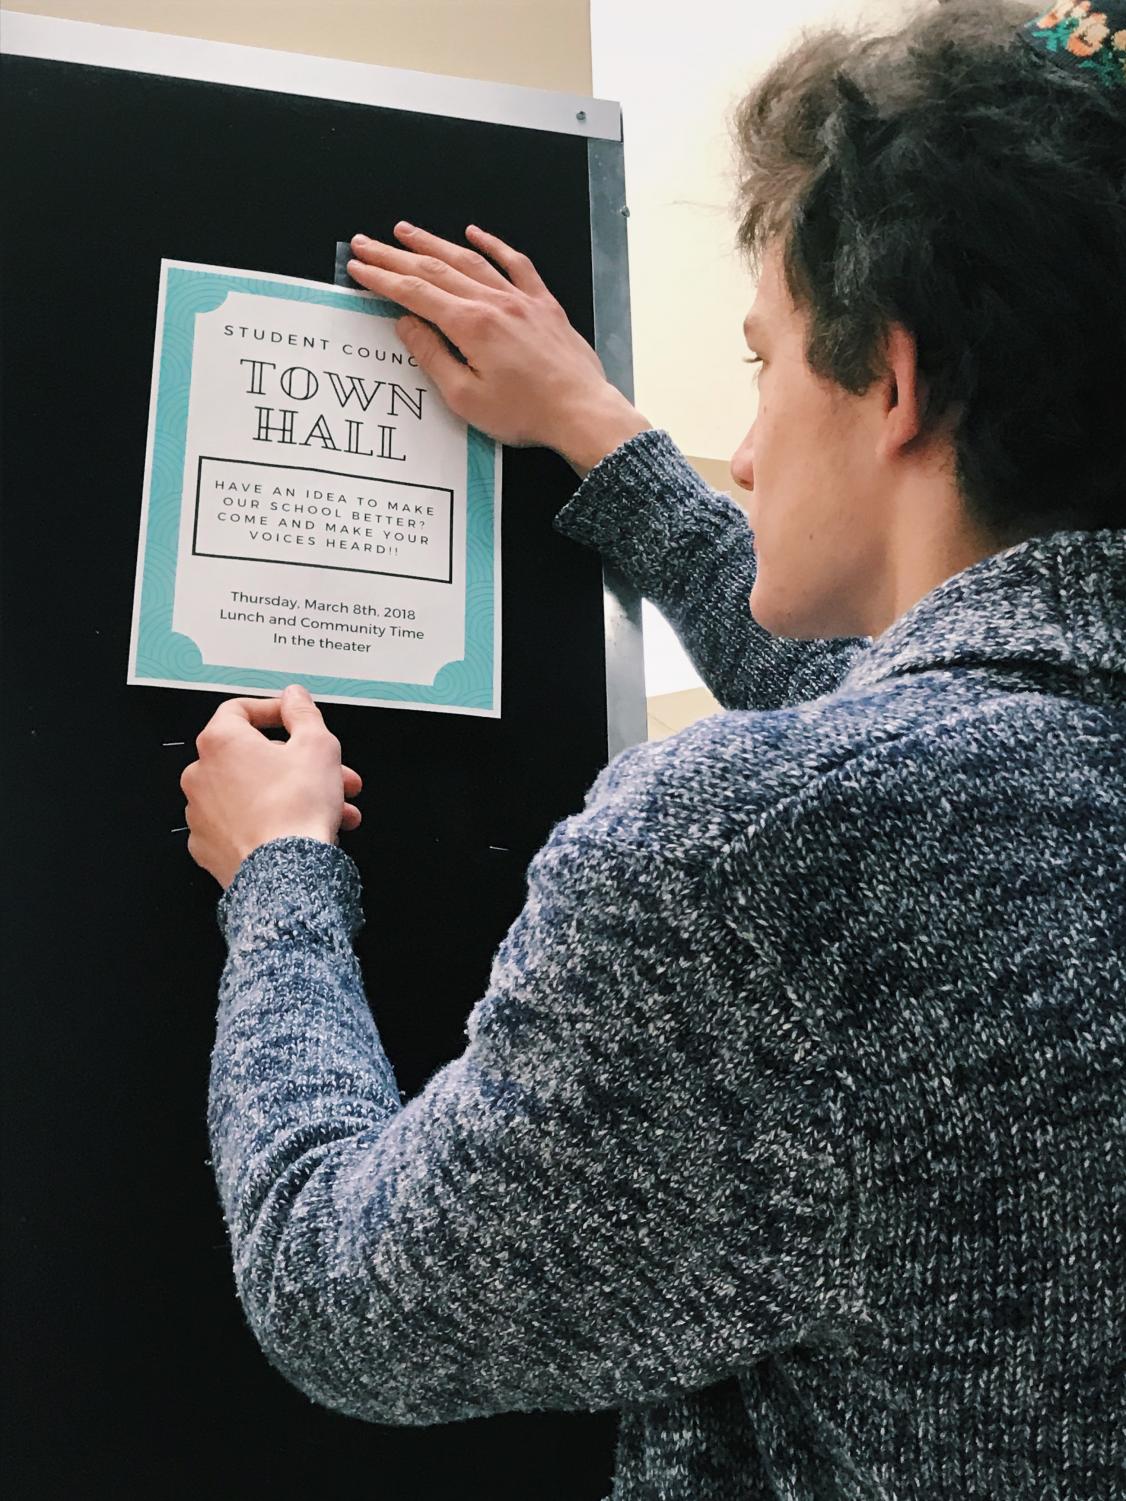 STUDENT COUNC
TOWN
HALL
HAVE AN IDEA TO MAKE
OUR SCHOOL BETTER?
COME AND MAKE YOUR
VOICES HEARD!!
Thursday, March 8th, 2018
Lunch and Community Time
In the theater